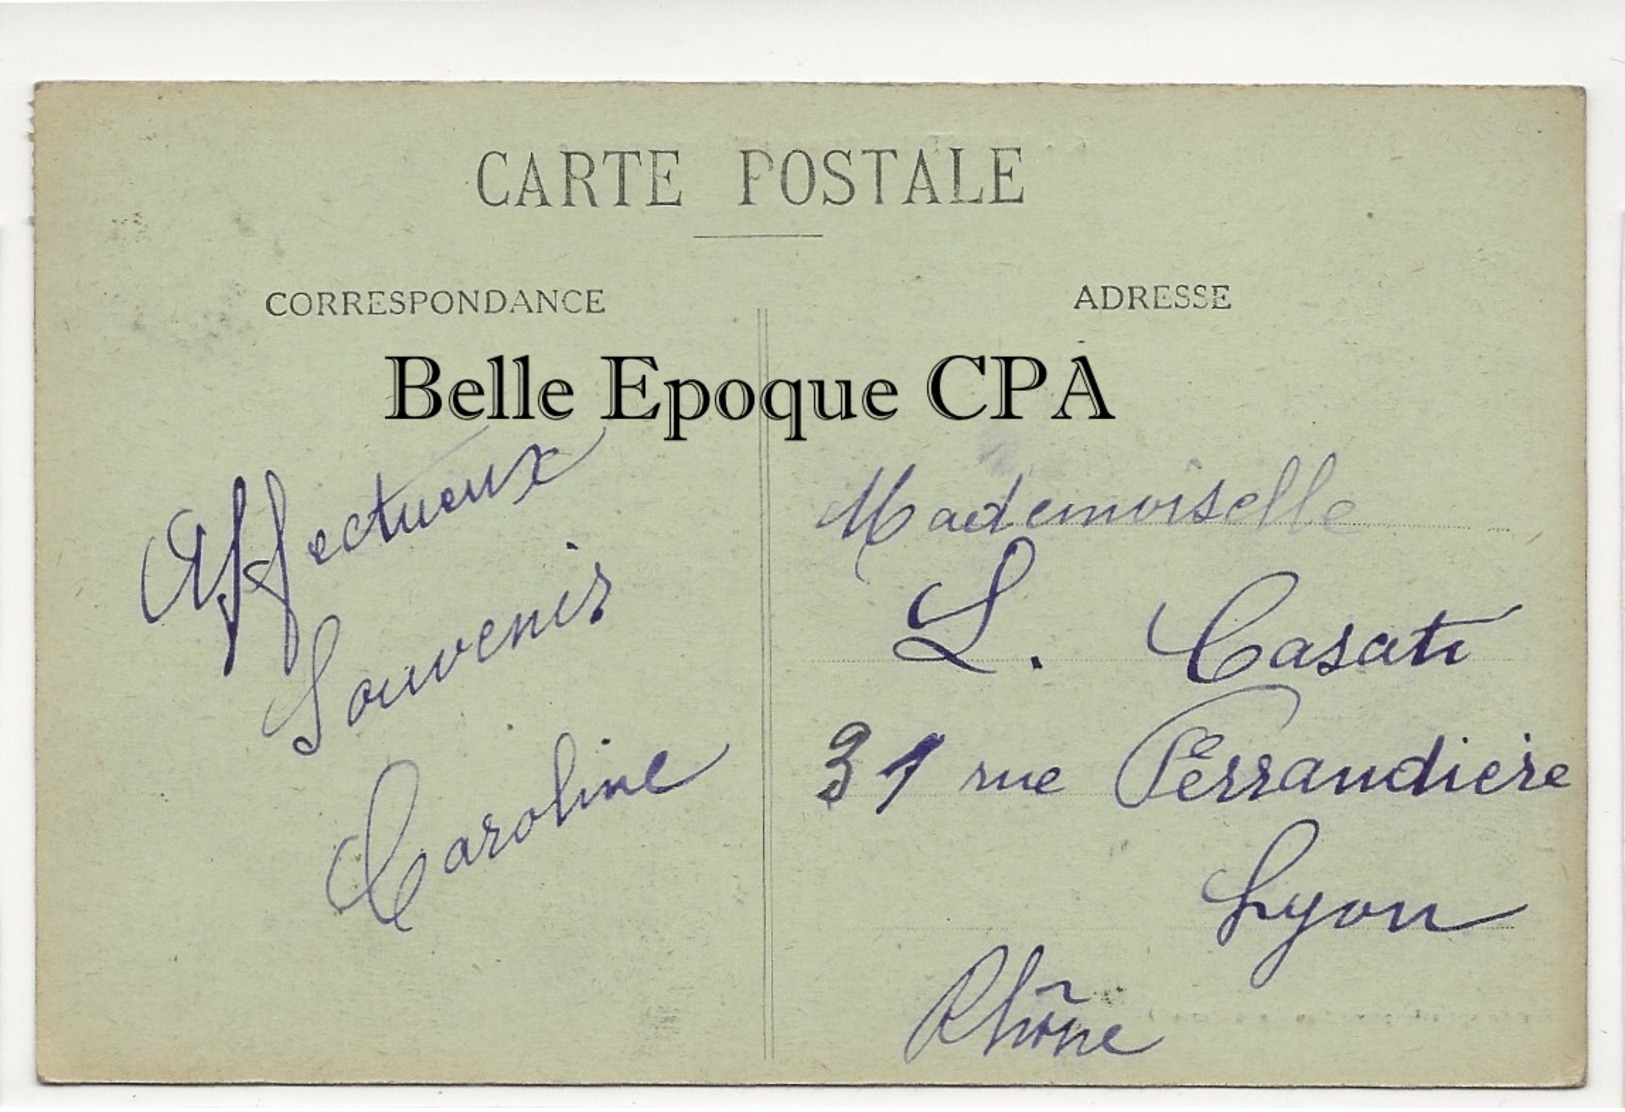 CARTE POSTALE
CORRESPONDANCE
ADRESSE
Belle Epoque CPA
Affectueux
Souvenir
Caroline
Mademoiselle
L. Casati
31 rue Perrandière
Lyon
Rhône